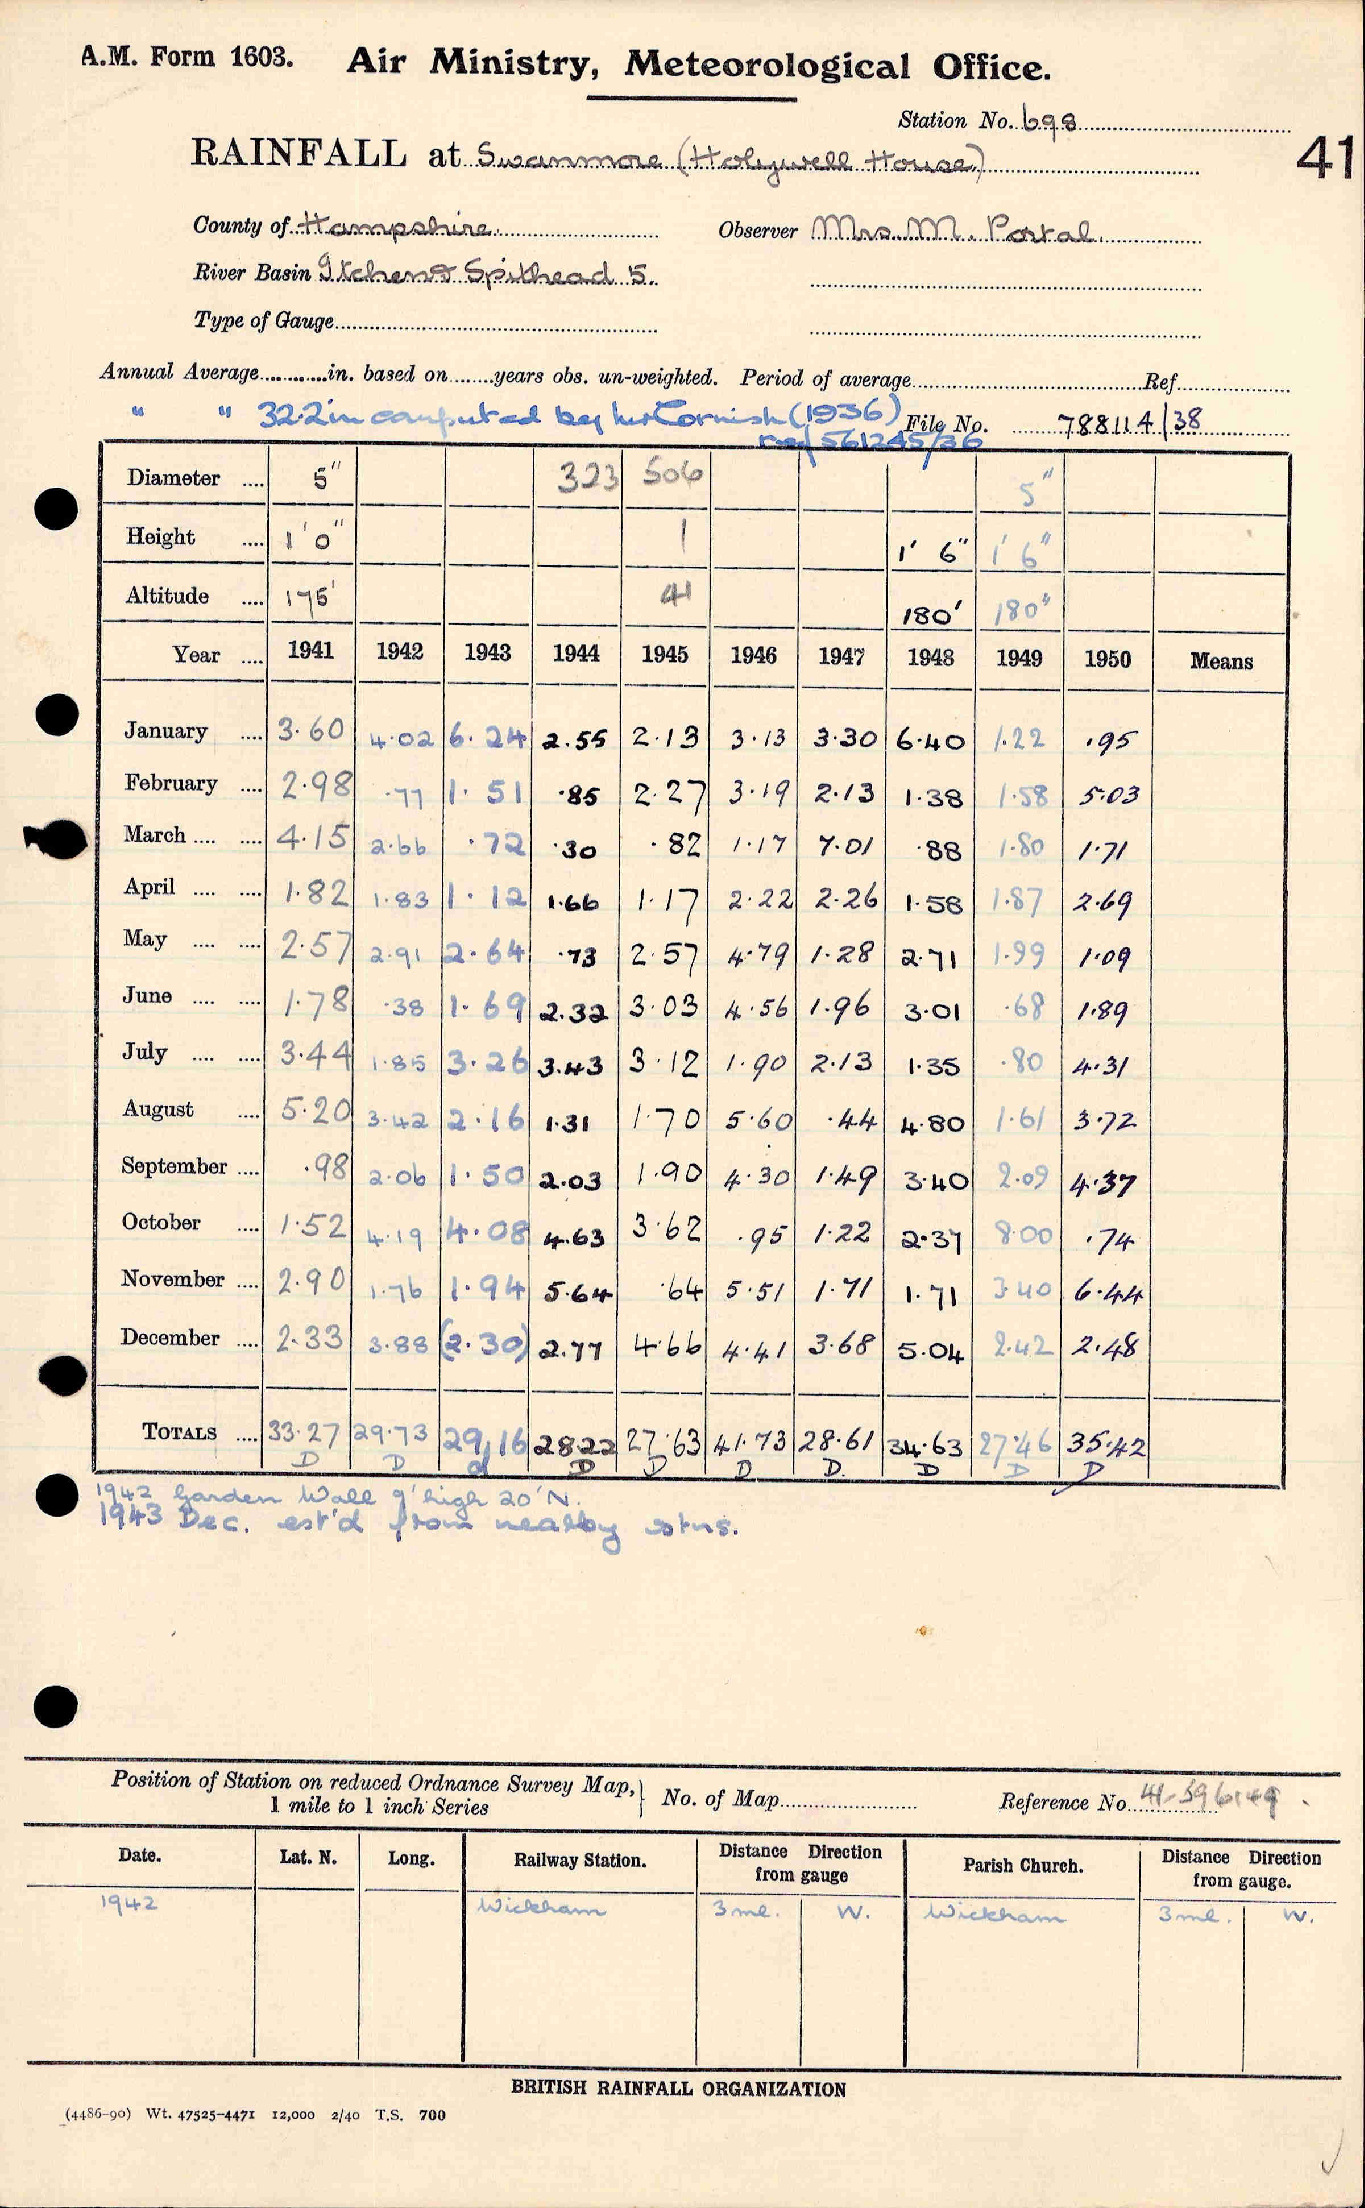 A.M. Form 1603. Air Ministry, Meteorological Office.
Station No. 698
41
RAINFALL at Swanmore (Holywell House)
County of Hampshire. Observer Mrs. M. Portal.
River Basin Itchen & Spithead 5.
Type of Gauge
Annual Average in. based on years obs. un-weighted. Period of average Ref.
" " 32.2in computed by Mr Cornish (1936) File No. 788114/38
ref 561245/36
Diameter .... 5" 323 506 5"
Height .... 1' 0" 1 1' 6" 1' 6"
Altitude .... 175' 41 180' 180"
Year .... 1941 1942 1943 1944 1945 1946 1947 1948 1949 1950 Means
January .... 3.60 4.02 6.24 2.55 2.13 3.13 3.30 6.40 1.22 .95
February .... 2.98 .77 1.51 .85 2.27 3.19 2.13 1.38 1.58 5.03
March .... .... 4.15 2.66 .72 .30 .82 1.17 7.01 .88 1.80 1.71
April .... .... 1.82 1.83 1.12 1.66 1.17 2.22 2.26 1.58 1.87 2.69
May .... .... 2.57 2.91 2.64 .73 2.57 4.79 1.28 2.71 1.99 1.09
June .... .... 1.78 .38 1.69 2.32 3.03 4.56 1.96 3.01 .68 1.89
July .... .... 3.44 1.85 3.26 3.43 3.12 1.90 2.13 1.35 .80 4.31
August .... 5.20 3.42 2.16 1.31 1.70 5.60 .44 4.80 1.61 3.72
September .... .98 2.06 1.50 2.03 1.90 4.30 1.49 3.40 2.09 4.37
October .... 1.52 4.19 4.08 4.63 3.62 .95 1.22 2.37 8.00 .74
November .... 2.90 1.76 1.94 5.64 .64 5.51 1.71 1.71 3.40 6.44
December .... 2.33 3.88 (2.30) 2.77 4.66 4.41 3.68 5.04 2.42 2.48
TOTALS .... 33.27 29.73 29.16 28.22 27.63 41.73 28.61 34.63 27.46 35.42
D D d D D D D. D D D
1942 Garden Wall 9' high 20' N.
1943 Dec. est'd from nearby stns.
Position of Station on reduced Ordnance Survey Map, } No. of Map Reference No.
1 mile to 1 inch Series
Date. Lat. N. Long. Railway Station. Distance Direction from gauge Parish Church. Distance Direction from gauge.
1942 Wickham 3 ml. W. Wickham 3 ml. W.
BRITISH RAINFALL ORGANIZATION
(4486-90) Wt. 47525-4471 12,000 2/40 T.S. 700